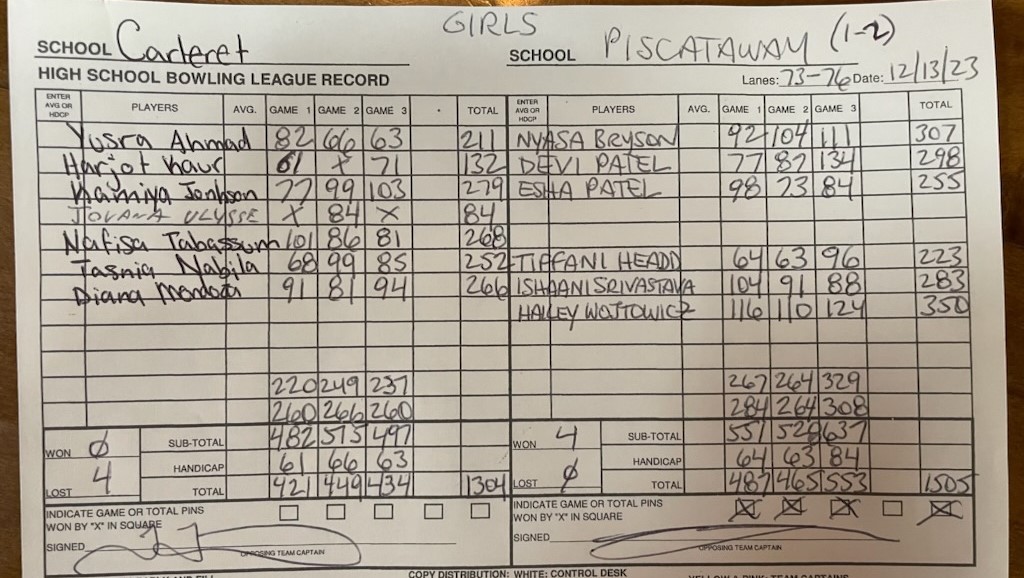 GIRLS
SCHOOL Carteret
SCHOOL PISCATAWAY (1-2)
HIGH SCHOOL BOWLING LEAGUE RECORD
Lanes: 73-76 Date: 12/13/23
ENTER AVG OR HDCP PLAYERS AVG. GAME 1 GAME 2 GAME 3 TOTAL ENTER AVG OR HDCP PLAYERS AVG. GAME 1 GAME 2 GAME 3 TOTAL
Yusra Ahmad 82 66 63 211 NYASA BRYSON 92 104 111 307
Harjot Kaur 61 X 71 132 DEVI PATEL 77 87 134 298
Kamiya Jonhson 77 99 103 279 ESHA PATEL 98 73 84 255
JOVANA ULYSSE X 84 X 84
Nafisa Tabassum 101 86 81 268
Tasnia Nabila 68 99 85 252 TIFFANI HEADD 64 63 96 223
Diana Mendoza 91 81 94 266 ISHAANI SRIVASTAVA 104 91 88 283
HAILEY WOJTOWICZ 116 110 124 350
220 249 237 267 264 329
260 266 260 284 264 308
WON 0 SUB-TOTAL 482 515 497 WON 4 SUB-TOTAL 551 528 637
HANDICAP 61 66 63 HANDICAP 64 63 84
LOST 4 TOTAL 421 449 434 1304 LOST 0 TOTAL 487 465 553 1505
INDICATE GAME OR TOTAL PINS WON BY "X" IN SQUARE
INDICATE GAME OR TOTAL PINS WON BY "X" IN SQUARE X X X X
SIGNED
OPPOSING TEAM CAPTAIN
SIGNED
OPPOSING TEAM CAPTAIN
COPY DISTRIBUTION: WHITE: CONTROL DESK